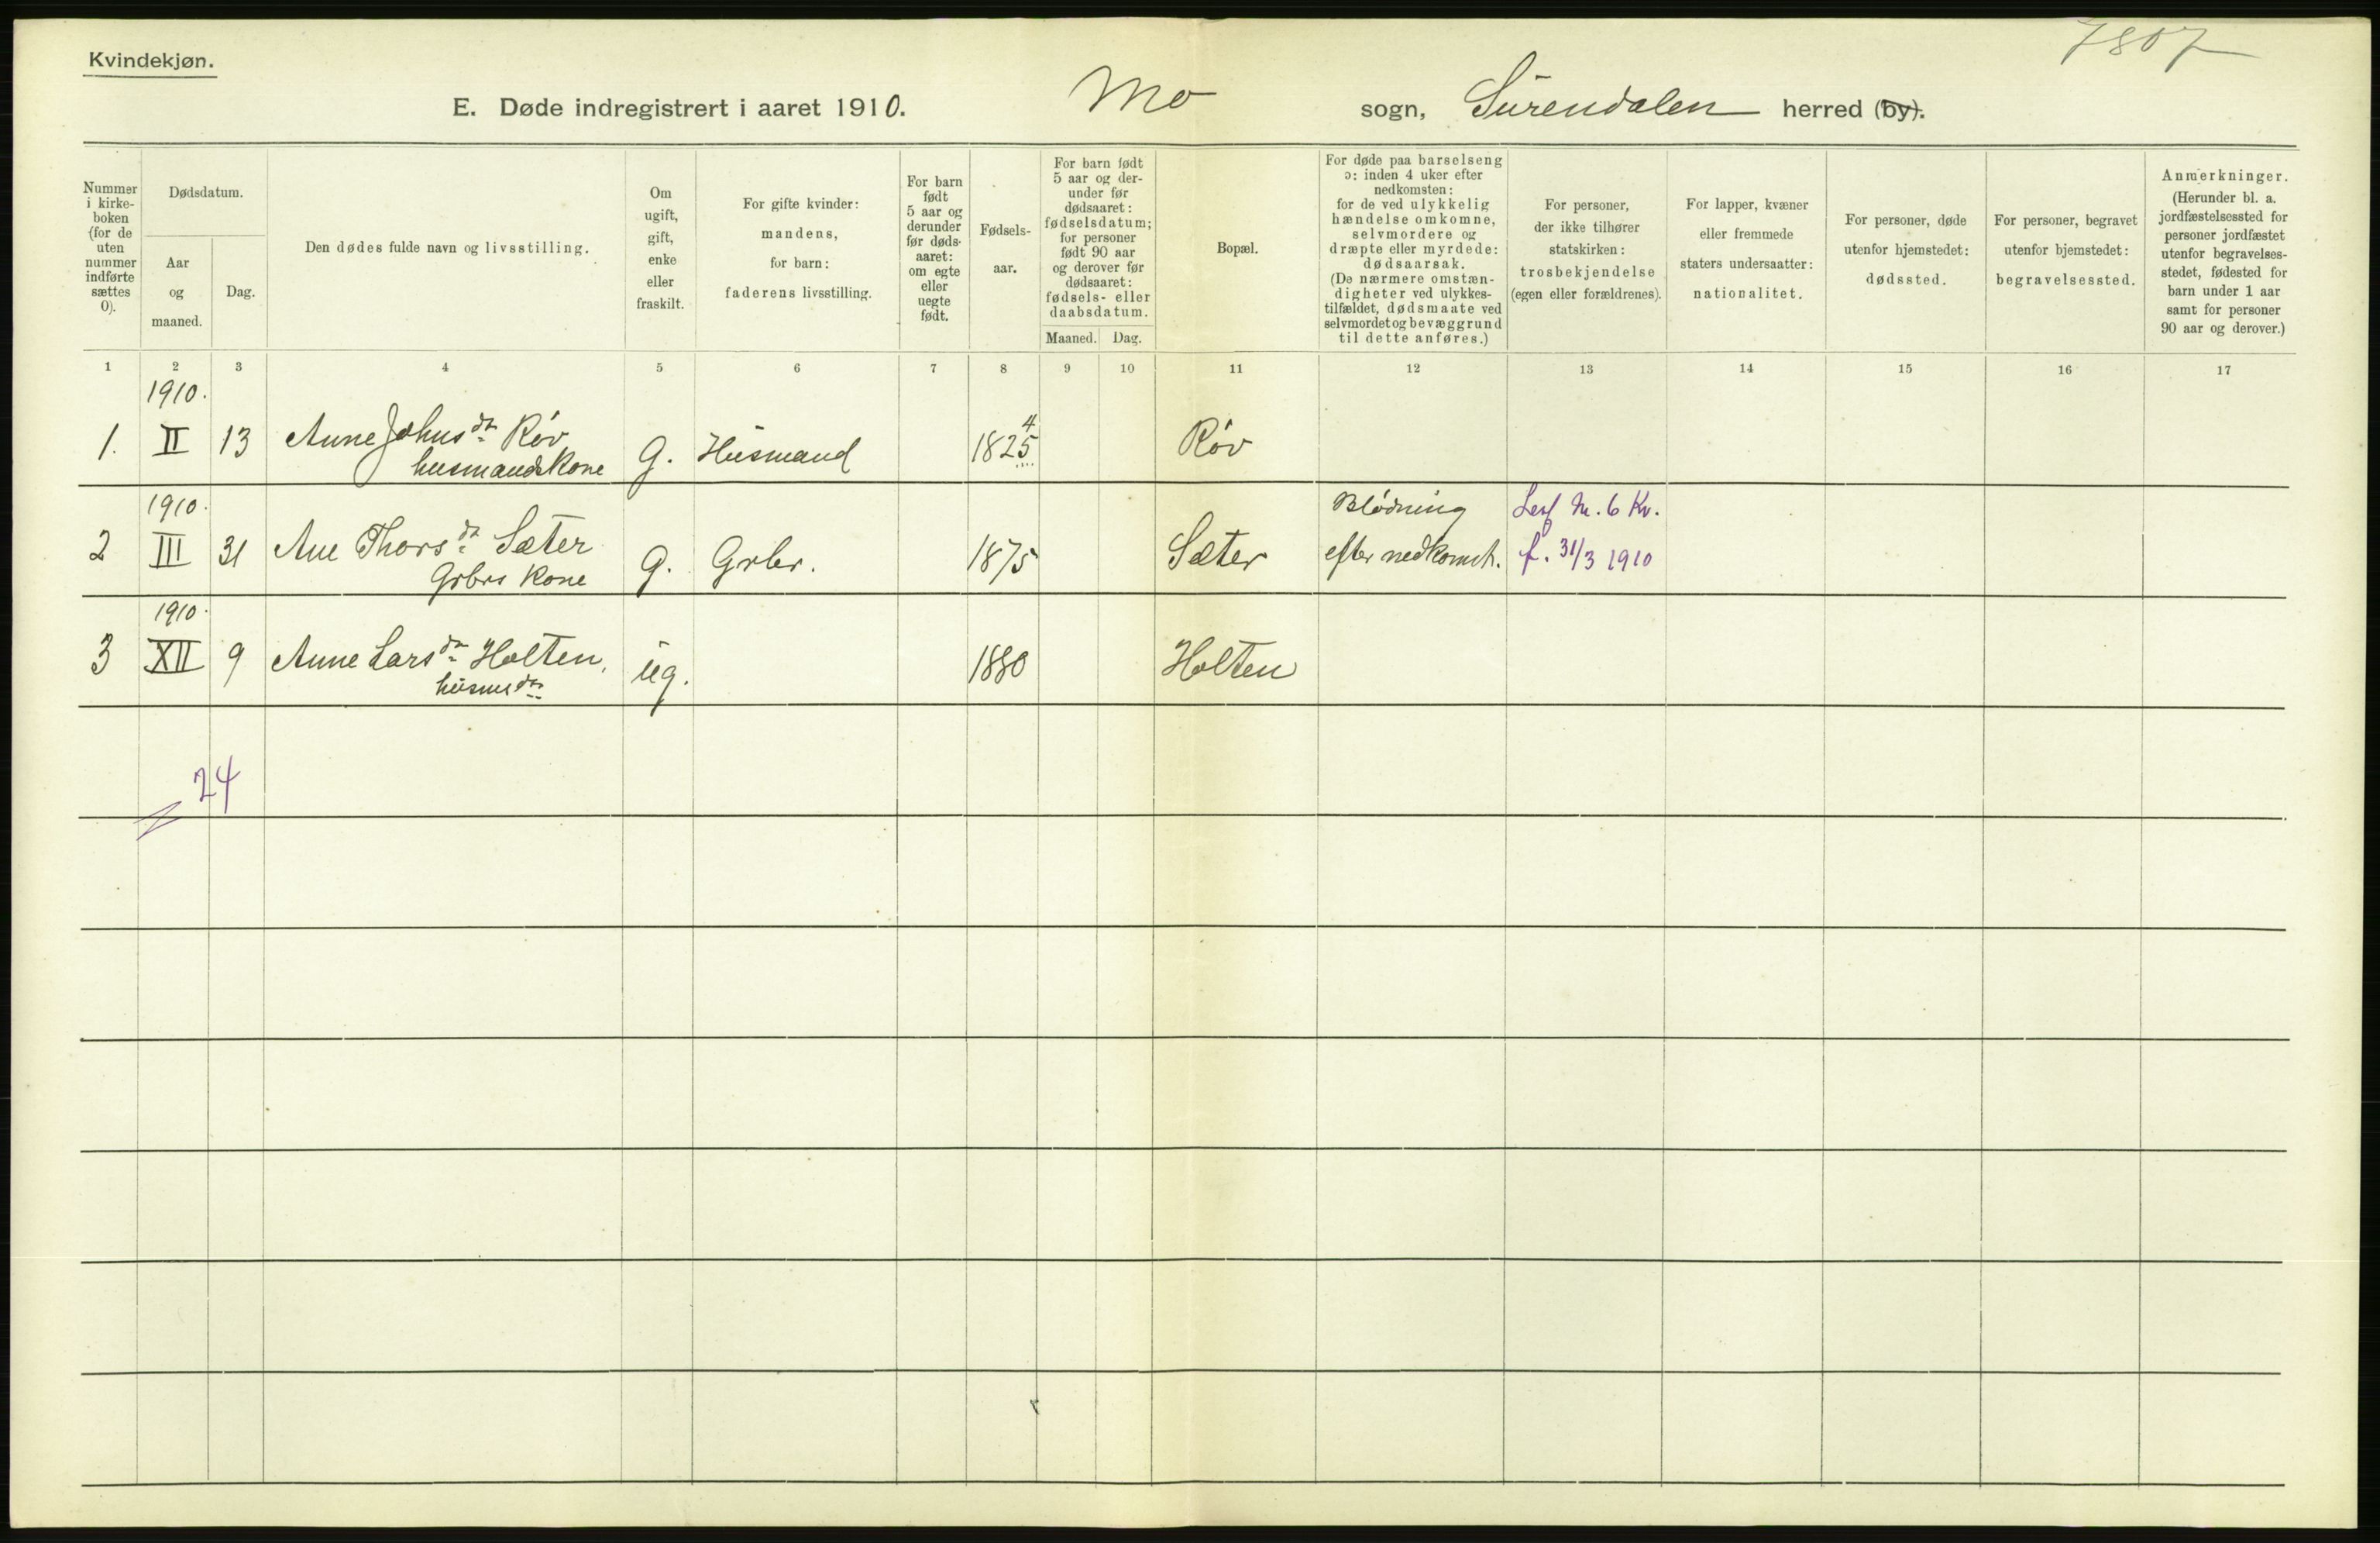 7807
Kvindekjøn.
E. Døde indregistrert i aaret 1910. Mo sogn, Surendalen herred (by).
Nummer i kirke- boken (for de uten nummer indførte sættes 0).
Dødsdatum.
Aar og maaned.
Dag.
Den dødes fulde navn og livsstilling.
Om ugift, gift, enke eller fraskilt.
For gifte kvinder: mandens, for barn: faderens livsstilling.
For barn født 5 aar og derunder før døds- aaret: om egte eller uegte født.
Fødsels- aar.
For barn født 5 aar og der- under før dødsaaret: fødselsdatum; for personer født 90 aar og derover før dødsaaret: fødsels- eller daabsdatum.
Maaned. Dag.
Bopæl.
For døde paa barselseng ɔ: inden 4 uker efter nedkomsten: for de ved ulykkelig hændelse omkomne, selvmordere og dræpte eller myrdede: dødsaarsak. (De nærmere omstæn- digheter ved ulykkes- tilfældet, dødsmaate ved selvmordet og bevæggrund til dette anføres.)
For personer, der ikke tilhører statskirken: trosbekjendelse (egen eller forældrenes).
For lapper, kvæner eller fremmede staters undersaatter: nationalitet.
For personer, døde utenfor hjemstedet: dødssted.
For personer, begravet utenfor hjemstedet: begravelsessted.
Anmerkninger. (Herunder bl. a. jordfæstelsessted for personer jordfæstet utenfor begravelses- stedet, fødested for barn under 1 aar samt for personer 90 aar og derover.)
1 2 3 4 5 6 7 8 9 10 11 12 13 14 15 16 17
1910.
1. II 13 Anne Johnsdr Røv g. Husmand 1825 4 Røv
husmandskone
1910. Blødning M. 6 Kv.
2 III 31 Ane Thorsdr Sæter g. Grbr. 1875 Sæter efter nedkomst. f. 31/3 1910
Grbrs kone
1910.
3 XII 9 Anne Larsdr Holten, ug. 1880 Holten
husmdr
24